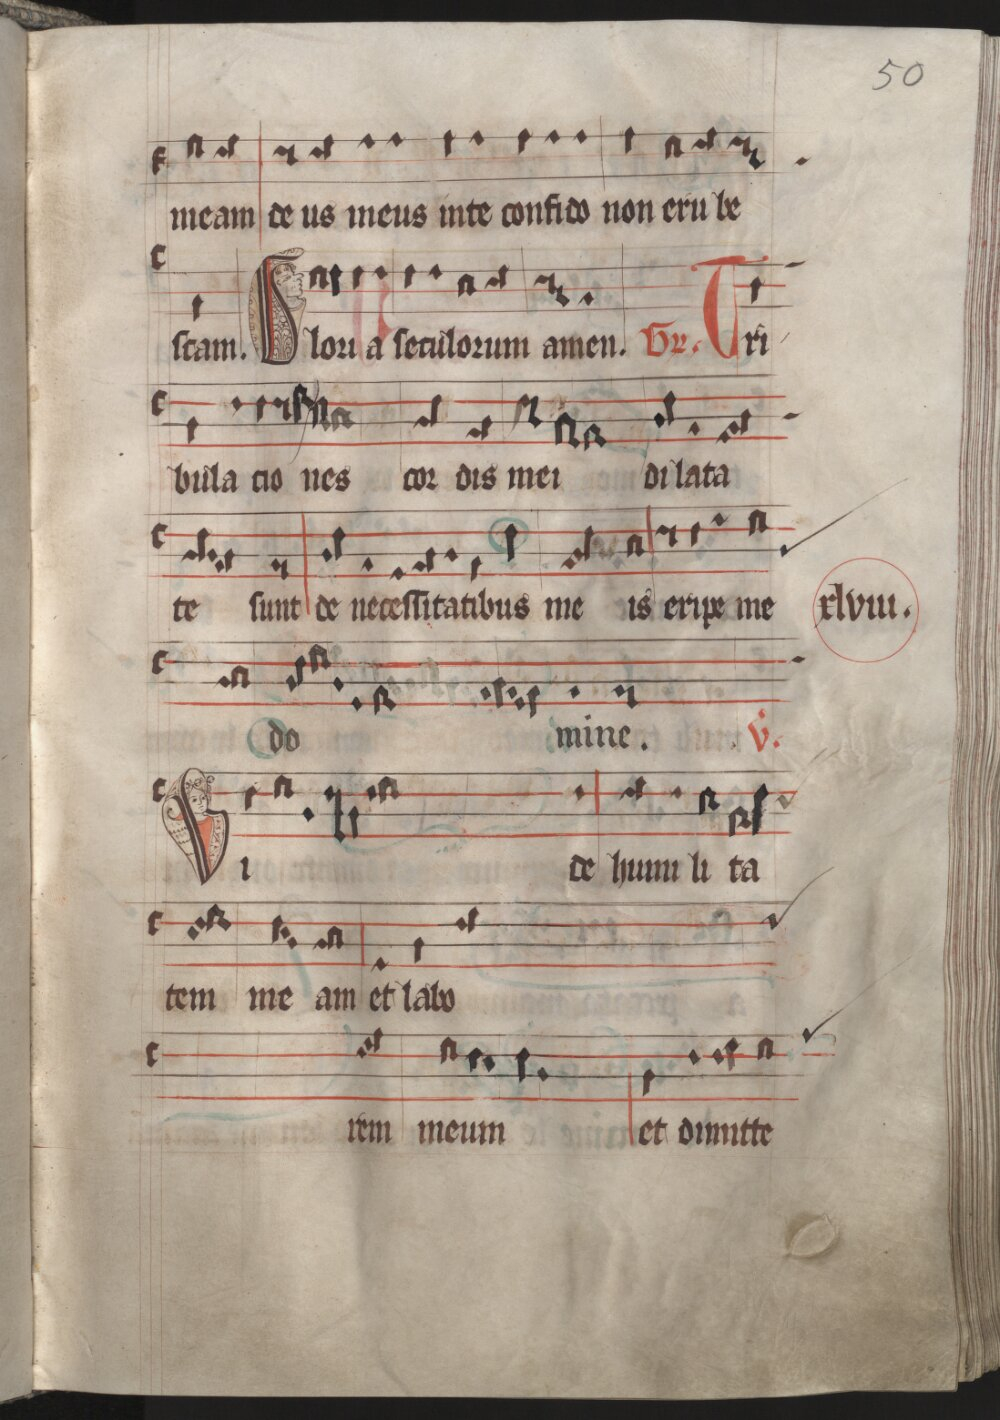 50
meam de us meus inte confido non eru be
scam. Glori a seculorum amen. Gr. Tri
bula cio nes cor dis mei di lata
te sunt de necessitatibus me is eripe me
xlviii.
do mine. V.
Vi de humi li ta
tem me am et labo
rem meum et dimitte